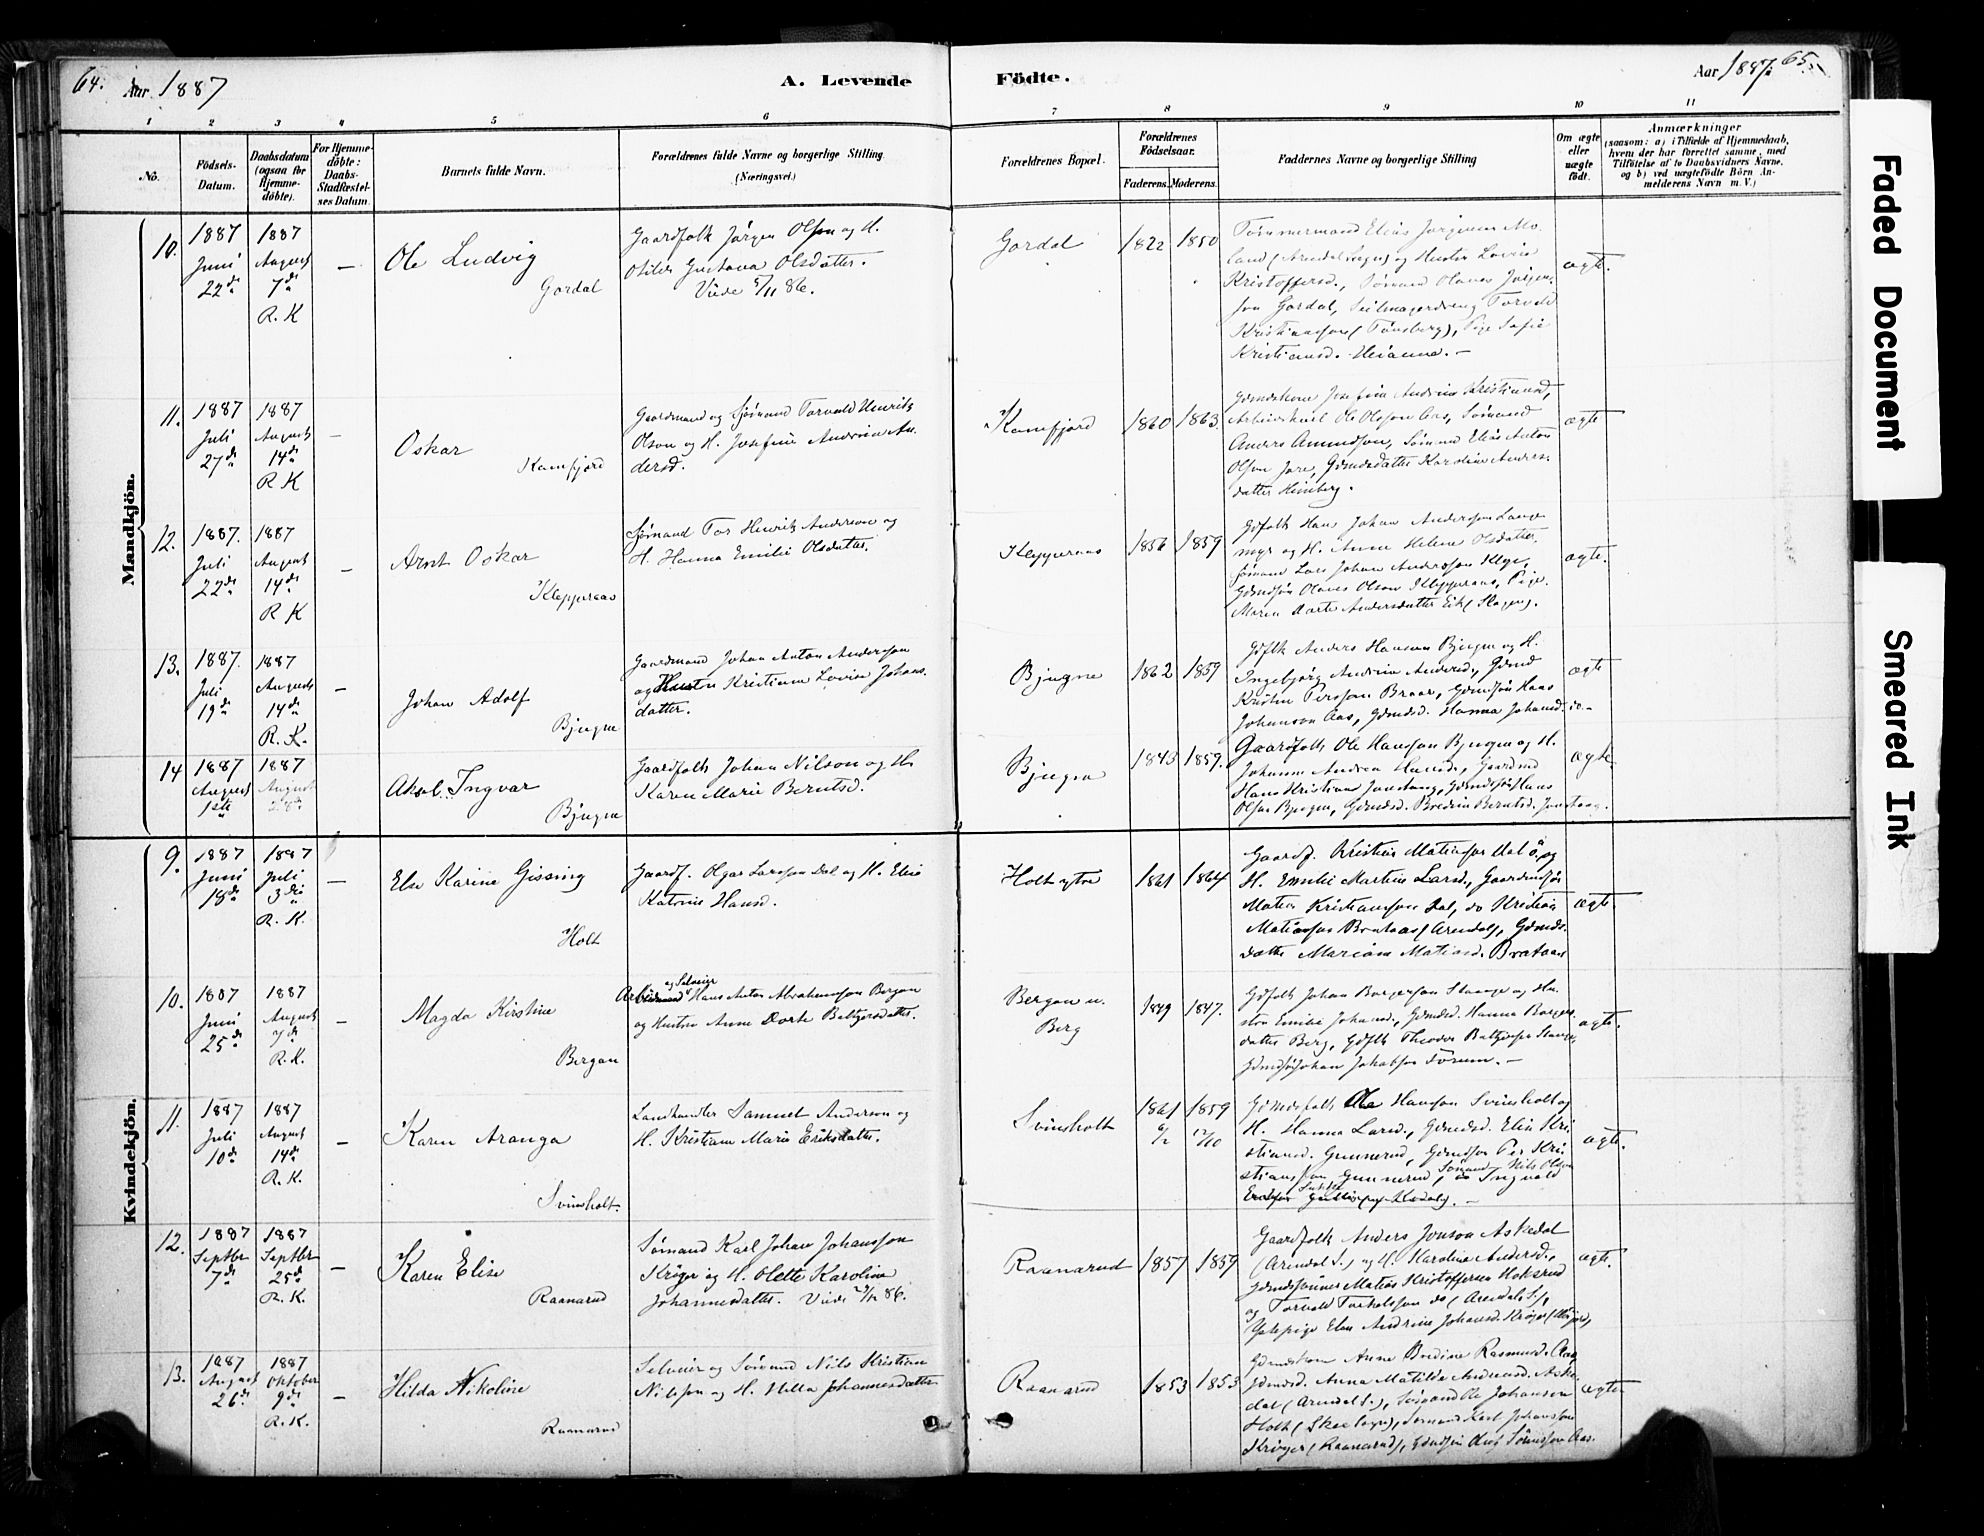 64. Aar 1887
A. Levende
Födte.
Aar 1887. 65.
1 2 3 4 5 6 7 8 9 10 11
No.
Födsels-Datum.
Daabsdatum (ogsaa for Hjemme-döbte).
For Hjemme-döbte: Daabs-Stadfæstel-ses Datum.
Barnets fulde Navn.
Forældrenes fulde Navne og borgerlige Stilling (Næringsvei.)
Forældrenes Bopæl.
Forældrenes Födselsaar.
Faderens. Moderens.
Faddernes Navne og borgerlige Stilling
Om ægte eller uægte födt.
Anmærkninger
(saasom: a) i Tilfælde af Hjemmedaab, hvem der har forrettet samme, med Tilföielse af to Daabsvidners Navne, og b) ved uægtefödte Börn An-melderens Navn m. V.)
Mandkjön.
10. 1887 Juni 22de
1887 August 7de R. K
—
Ole Ludvig
Gordal
Gaardfolk Jörgen Olsen og H.
Otilde Gustava Olsdatter.
Viede 5/11 86.
Gordal
1822 1850
Tömmermand Elias Jørgensen Mo-
land (Arendal Sogn) og Hustru Lovise
Kristoffersd., Sömand Olaves Jörgen-
sen Gordal, Seilmagerdreng Torvald
Kristiansen (Tönsberg), Pige Sofie
Kristiansd.
ægte.
11. 1887 Juli 27de
1887 August 14de R K
—
Oskar
Kamfjord
Gaardmand og Sjömand Torvald Henrik
Olson og H. Josefine Andrine An-
dersd.
Kamfjord
1860 1863
Gdmdskone Josefine Andrine Kristiansd,
Arbeidskarl Ole Olsson Aas, Sömand
Anders Amundsen, Sömand Elias Anton
Olsen Jare, Gdmdsdatter Karoline Anders-
datter Heimberg.
ægte
12. 1887. Juli 22de
1887 August 14de R K
—
Arnt Oskar
Kleppernas
Sjömand Tor Henrik Andersen og
H. Hanna Emilie Olsdatter.
Kleppernas
1856 1859
Gdfolk Hans Johan Andersson Lange-
myr og H. Anne Helene Olsdatter,
Sömand Lars Johan Andersson
Gdmdsön Olaves Olsen Kleppernas, Pige
Maren Dorte Andersdatter Eik (Slagen).
ægte.
13. 1887. Juli 19de
1887 August 14de R. K.
—
Johan Adolf
Bjugne
Gaardmand Johan Anton Andersson
og Hustru Kristiane Lovise Johans-
datter.
Bjugne
1862 1859
Gdflk Anders Hansen Bjugne og H.
Ingebjörg Andrine Andersd., Gdmd
Kristen Persson Braar, Gdmdsön Hans
Johanson Aas, Gdmdsd. Hanna Johansd. do-
ægte
14 1887 August 1ste
1887 August 28de
Aksel Ingvar
Bjugne
Gaardfolk Johan Nilson og H.
Karen Marie Berntsd.
Bjugne
1843 1859.
Gaardfolk Ole Hansson Bjugne og H.
Johanne Andrea Hansd., Gaardmd
Hans Kristian, Gdmdsön Hans
Olsen Bjugne, Gdmdsd. Bredine Berntsd.
ægte
Kvindekjön.
9. 1887 Juni 18de
1887 Juli 3die R. K.
—
Else Karine Gissing
Holt
Gaardf. Olgar Larsson Dal og H. Elise
Katrine Hansd.
Holt ytre
1861 1864
Gaardf. Kristian Matiassen Dal ö. og
H. Emilie Martine Larsd., Gaardmdsön
Matias Kristiansson Dal, do Kristian
Matiassen Brataas (Arendal), Gdmds-
datter Mariane Matiasd. Brataas
ægte.
10. 1887 Juni 25de
1887 August 7de R. K.
—
Magda Kirstine
Bergan
Arbeidsmand og Selveier Hans Anton Abrahamsson Bergan
og Hustru Anne Dorte Baltzersdatter.
Bergan u.
Berg
1849 1847.
Gdfolk Johan Borgersson Stange og Hu-
stru Emilie Johansd., Gdmdsd. Hanna Borgers-
datter Berg, Gdflk Theodor Baltzersen Stange,
Gdmdsön Johan Jakobsen Förum. —
ægte.
11. 1887 Juli 10de
1887 August 14de R. K.
—
Karen Aranga
Svinsholt.
Landhandler Samuel Anderson og
H. Kristiane Marie Eriksdatter.
Svinsholt
1861 6/2 1859 12/10
Gdmdsfolk Ole Hansson Svinsholt og
H. Hanna Larsd., Gdmdsd. Elise Kri-
stiansd. Gunnerud, Gdmdsön Per Kri-
stiansson Gunnerud, Sömand Nils Olsen
do Ingvald
ægte.
12. 1887 Septbr 7de
1887 Septbr 25de R. K.
—
Karen Elise
Raanarud
Sömand Karl Johan Johansson
Kröger og H. Olette Karoline
Johannesdatter.
Raanarud
1857 1859
Gaardfolk Anders Jonson Askedal
(Arendal S.) og H. Karoline Andersd.,
Gdmdssönner Matias Kristoffersen Hoksrud
og Torvald Torkelsson do (Arendal S.),
Pige Elen Andrine Johansd. Kröger
ægte.
13. 1887 August 26de
1887 Oktober 9de R. K.
—
Hilda Nikoline
Raanarud
Selveier og Sömand Nils Kristian
Nilsson og H. Hella Johannesdatter
Raanarud
1853 1853
Gdmdskone Anne Bredine Rasmusd. Aas,
Gdmdsd. Anna Matilde Andersd. Aske-
dal (Arendal S.), Sömand Ole Johansen
Holt (Skee Sogn), Sömand Karl Johansson
Kröger (Raanarud), Gdmdsön Aas.
ægte
Faded Document
Smeared Ink